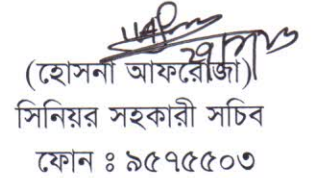 (হোসনা আফরোজা)
সিনিয়র সহকারী সচিব
ফোন ঃ ৯৫৭৫৫০৩